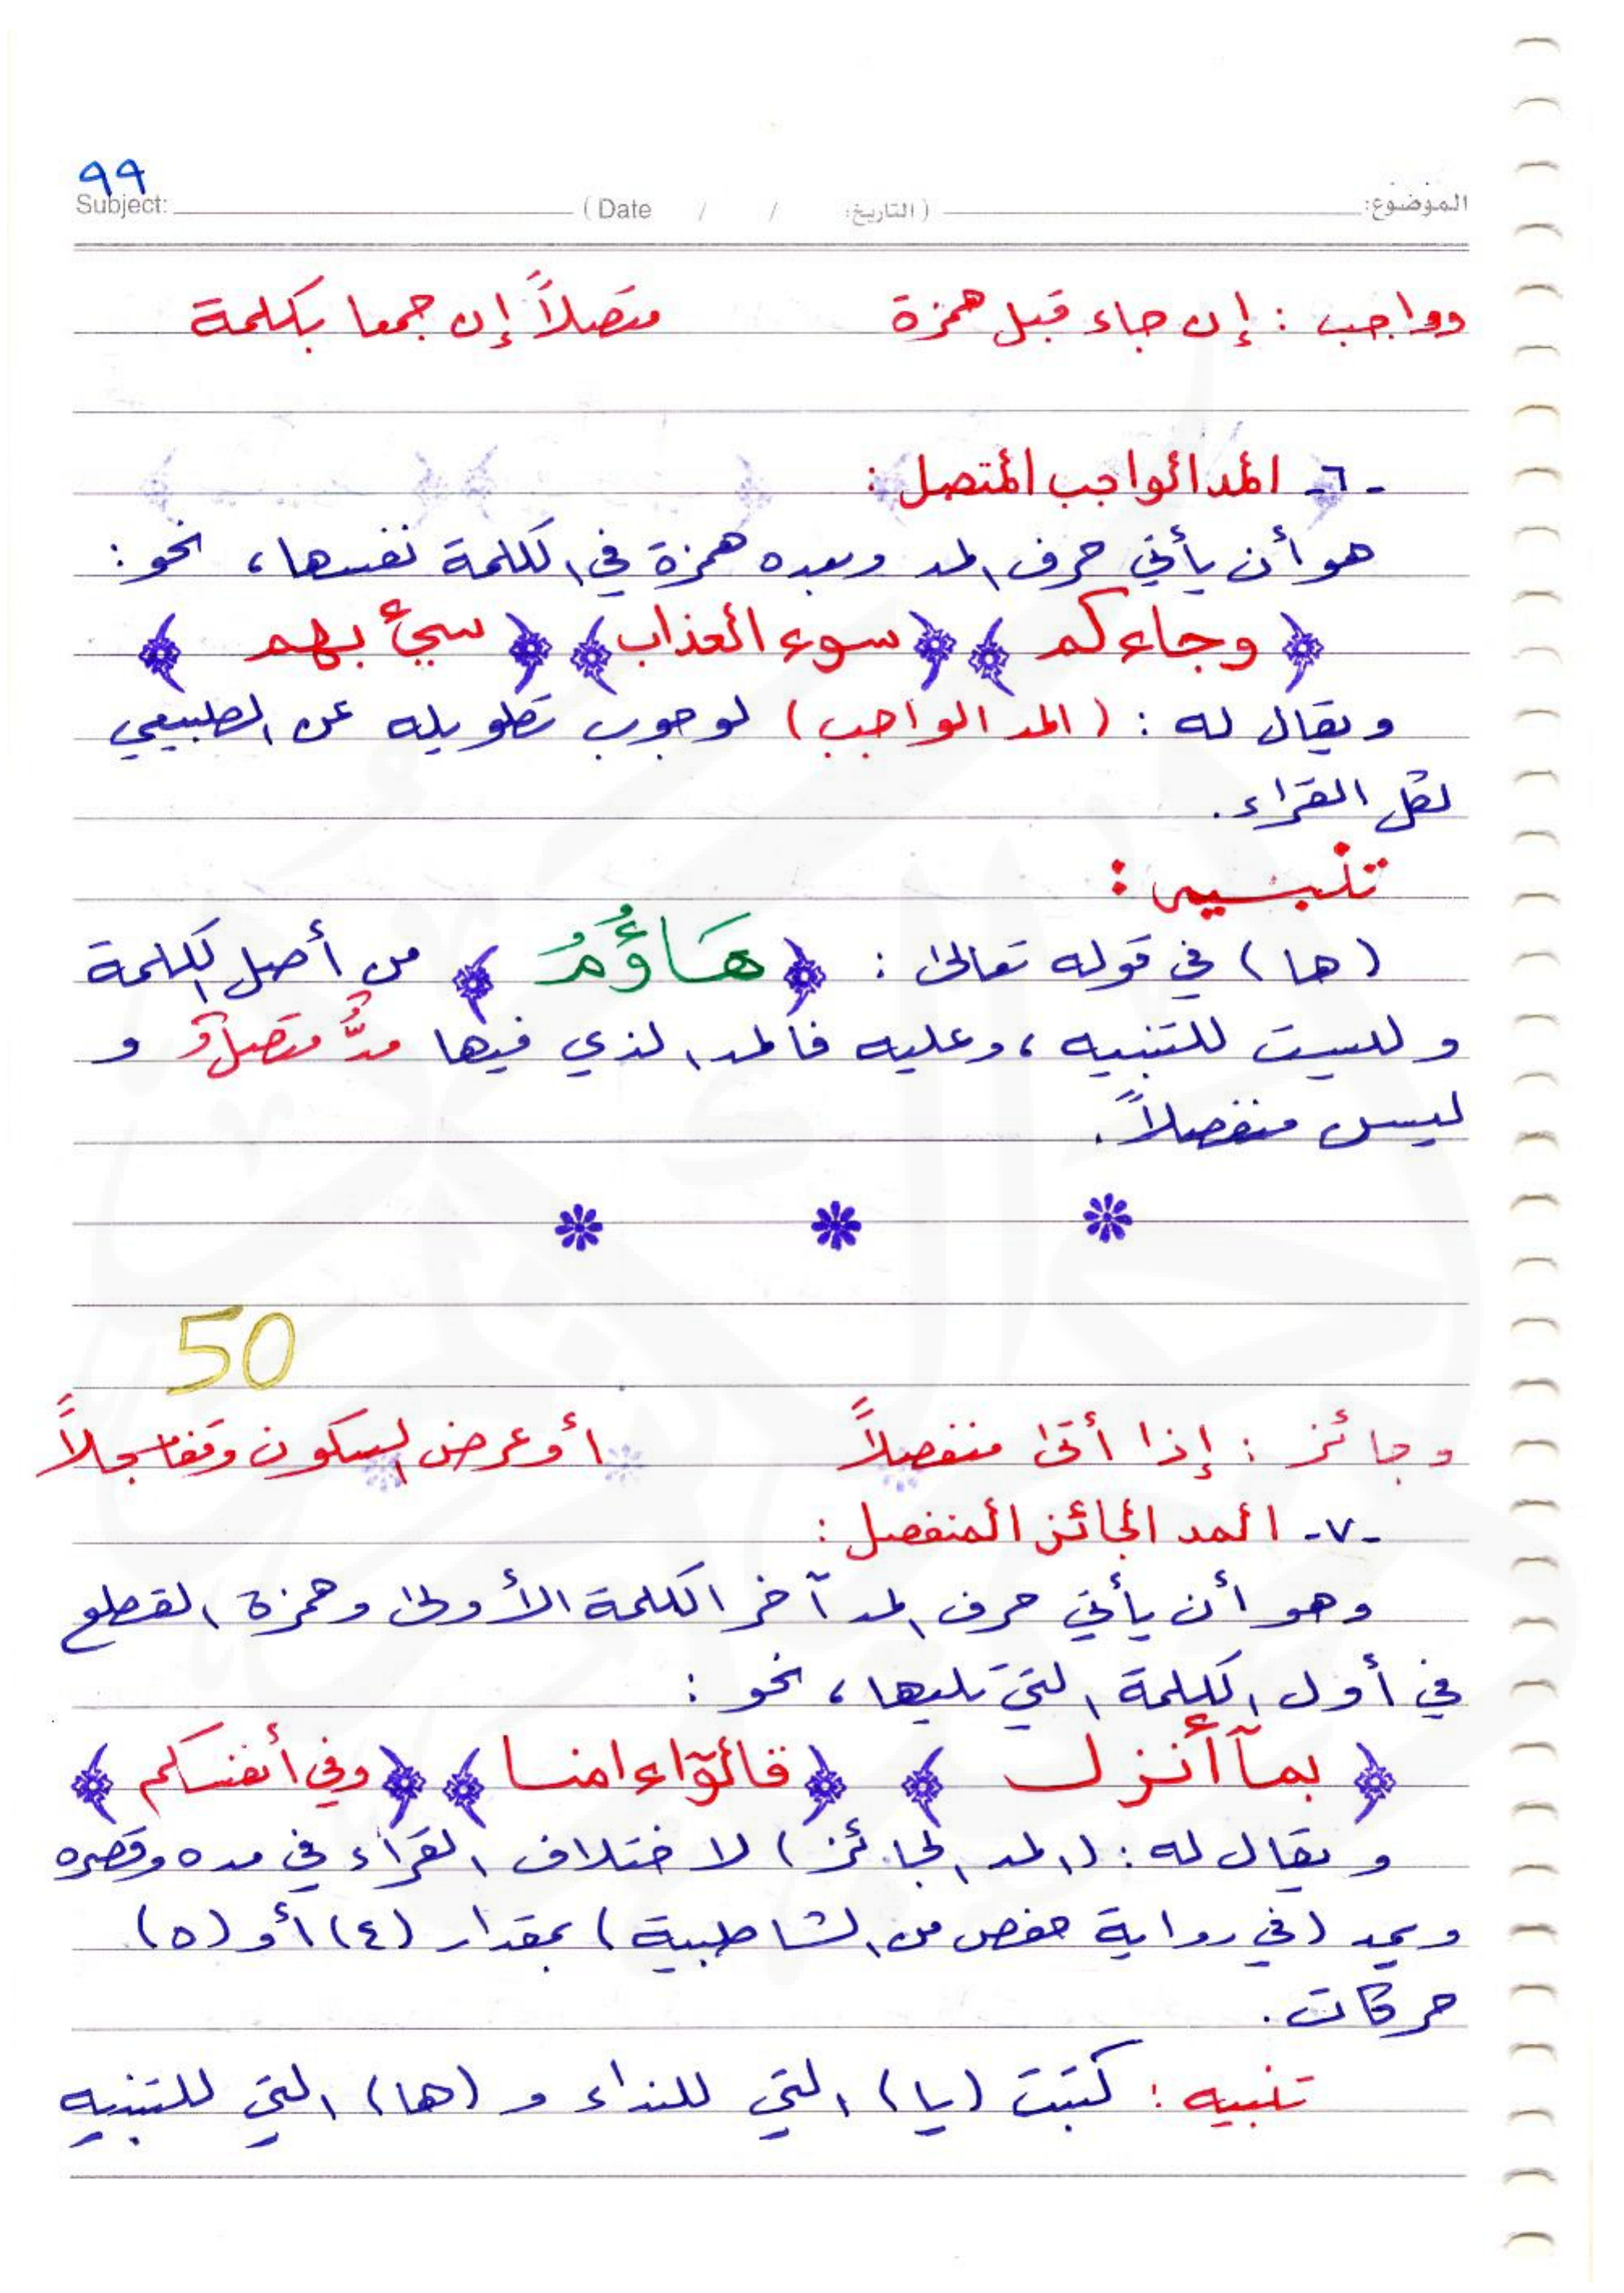 ٩٩
Subject: (Date / / التاريخ:) الموضوع:
وواجب : إن جاء قبل همزة متصلاً إن جمعا بكلمة
-٦- المد الواجب المتصل :
هو أن يأتي حرف المد وبعده همزة في الكلمة نفسها، نحو :
﴿ وجاءكم ﴾ ﴿ سوء العذاب ﴾ ﴿ سيء بهم ﴾
ويقال له : (المد الواجب) لوجوب تطويله عن الطبيعي
لكل القراء .
تنبيه :
(ها) في قوله تعالى : ﴿ هَاؤُمُ ﴾ من أصل الكلمة
وليست للتنبيه، وعليه فالمد الذي فيها مدٌّ متصلٌ و
ليس منفصلاً .
50
وجائز : إذا أتى منفصلاً أو عرض السكون وقفا مسجلاً
-٧- المد الجائز المنفصل :
وهو أن يأتي حرف المد آخر الكلمة الأولى وهمزة القطع
في أول الكلمة التي تليها، نحو :
﴿ بمآ أنزل ﴾ ﴿ قالوٓا ءامنا ﴾ ﴿ وفي أنفسكم ﴾
ويقال له : (المد الجائز) لاختلاف القراء في مده وقصره
ويمد (في رواية حفص من الشاطبية) بمقدار (٤) أو (٥)
حركات .
تنبيه : كتبت (يا) التي للنداء و (ها) التي للتنبيه